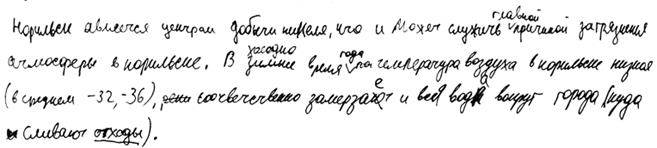 Норильск является центром добычи никеля, что и может служить главной причиной загрязнения
атмосферы в норильске. В зимнее время года температура воздуха в норильске низкая
(в среднем -32, -36), соответственно замерзает и вся вода вокруг города (куда
сливают отходы).